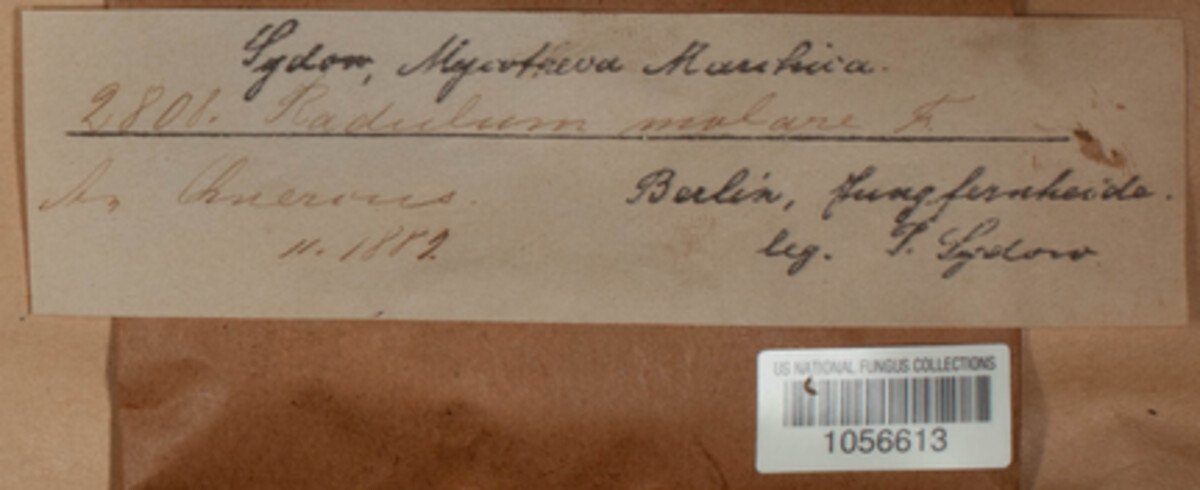 Sydow, Mycotheca Marchica.
2808. Radulum molare F.
An Quercus.
11. 1889.
Berlin, Jungfernheide.
leg. P. Sydow
US NATIONAL FUNGUS COLLECTIONS
1056613